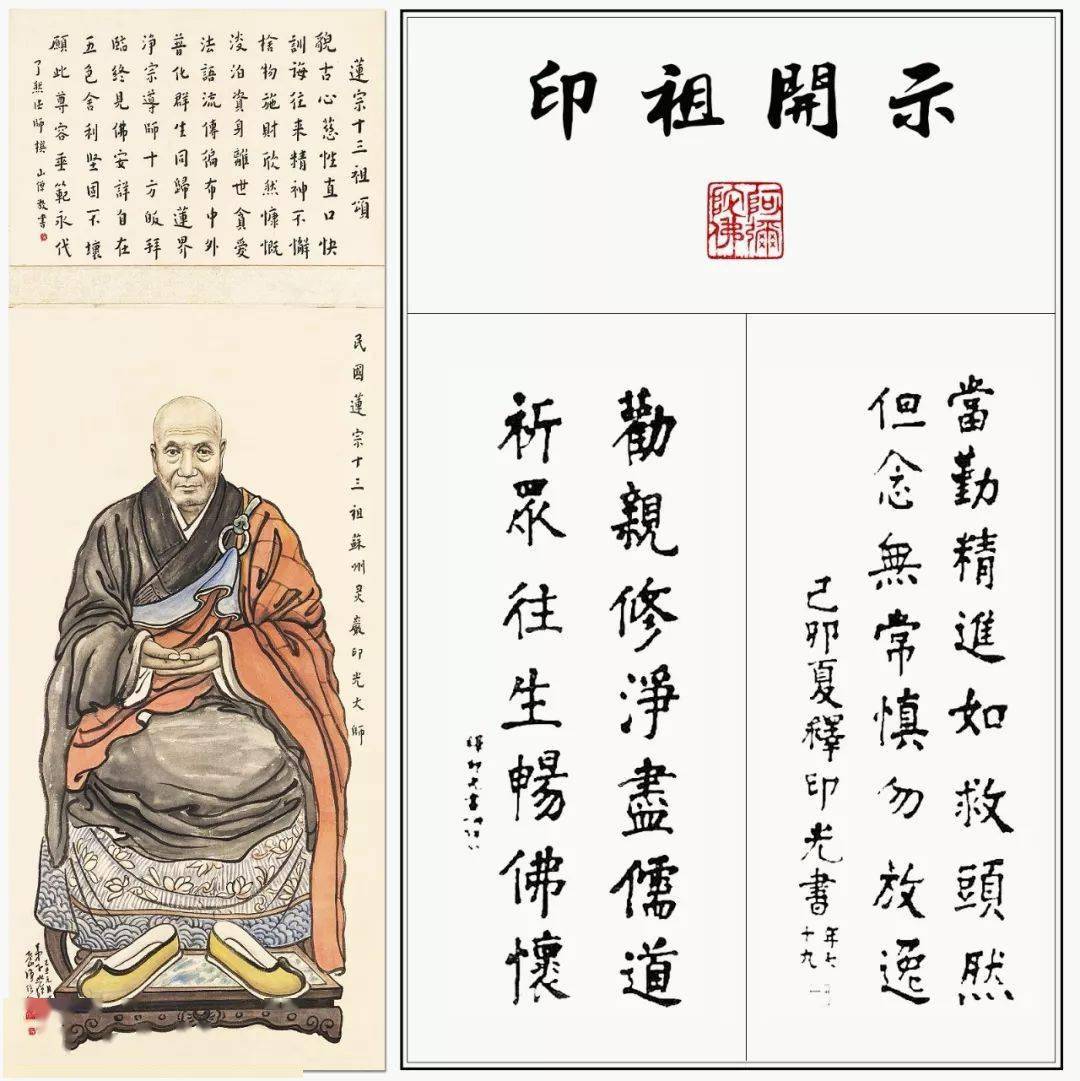 蓮宗十三祖頌
貌古心慈性直口快
訓誨往来精神不懈
捨物施財欣然慷慨
淡泊資身離世貪愛
法語流傳徧布中外
普化群生同歸蓮界
净宗導師十方皈拜
臨终見佛安詳自在
五色舍利坚固不壞
願此尊容垂範永代
了然法師撰 山僧敬書
民國蓮宗十三祖蘇州灵巖印光大師
印祖開示
阿彌陀佛
當勤精進如救頭然
但念無常慎勿放逸
己卯夏釋印光書 年七十九
勸親修淨盡儒道
祈眾往生暢佛懷
釋印光書